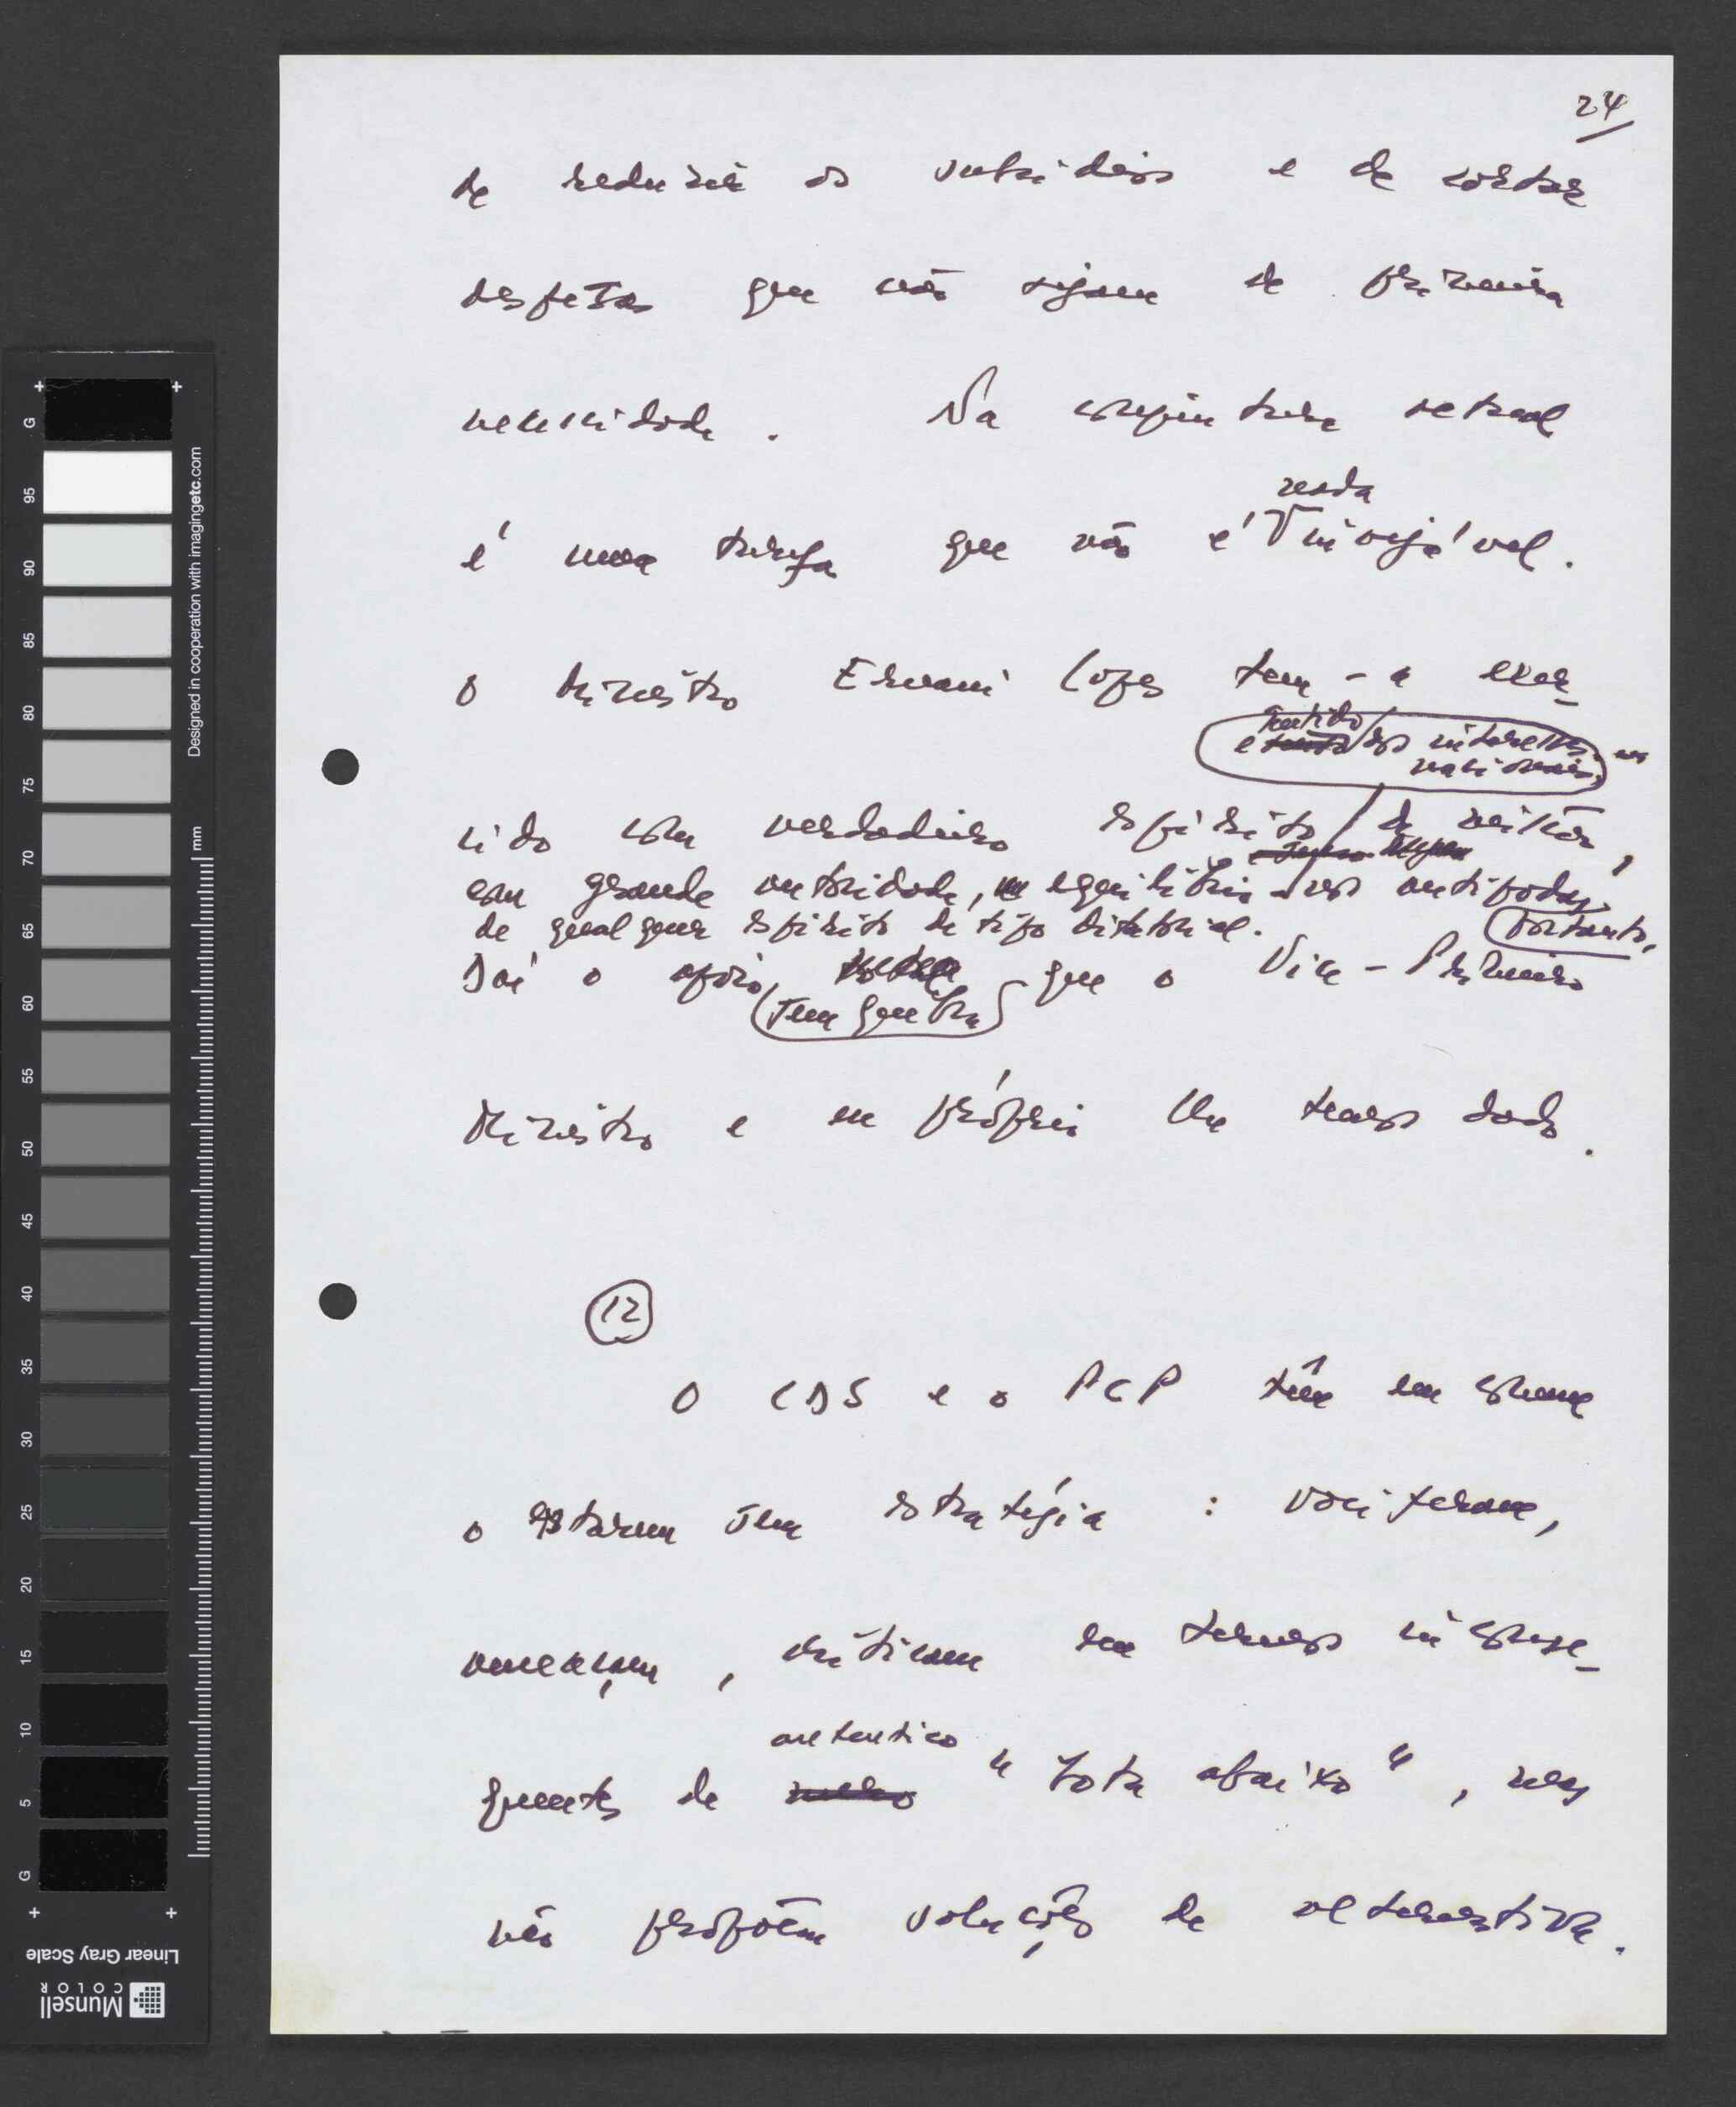 24
de reduzir os subsídios e de cortar
despesas que não sejam de primeira
necessidade. Na conjuntura actual
nada
é uma tarefa que não é invejável.
O Ministro Ernani Lopes tem-a exer-
sentido
e dos interesses
nacionais,
cido com verdadeiro espírito de missão,
com grande autoridade, equilíbrio e nos antípodas
de qualquer espírito de tipo ditatorial.
Portanto,
Daí o apoio, que o Vice-Primeiro
sem quebra
Ministro e eu próprio lhe temos dado.
12
O CDS e o PCP têm em comum
o estarem sem estratégia : vociferam,
ameaçam, criticam em termos inconse-
autentico
quentes de "bota abaixo", mas
não propõem soluções de alternativa.
G
95
90
85
80
75
70
65
60
55
50
45
40
35
30
25
20
15
10
5
G
mm
Designed in cooperation with imagingetc.com
Linear Gray Scale
Munsell
COLOR